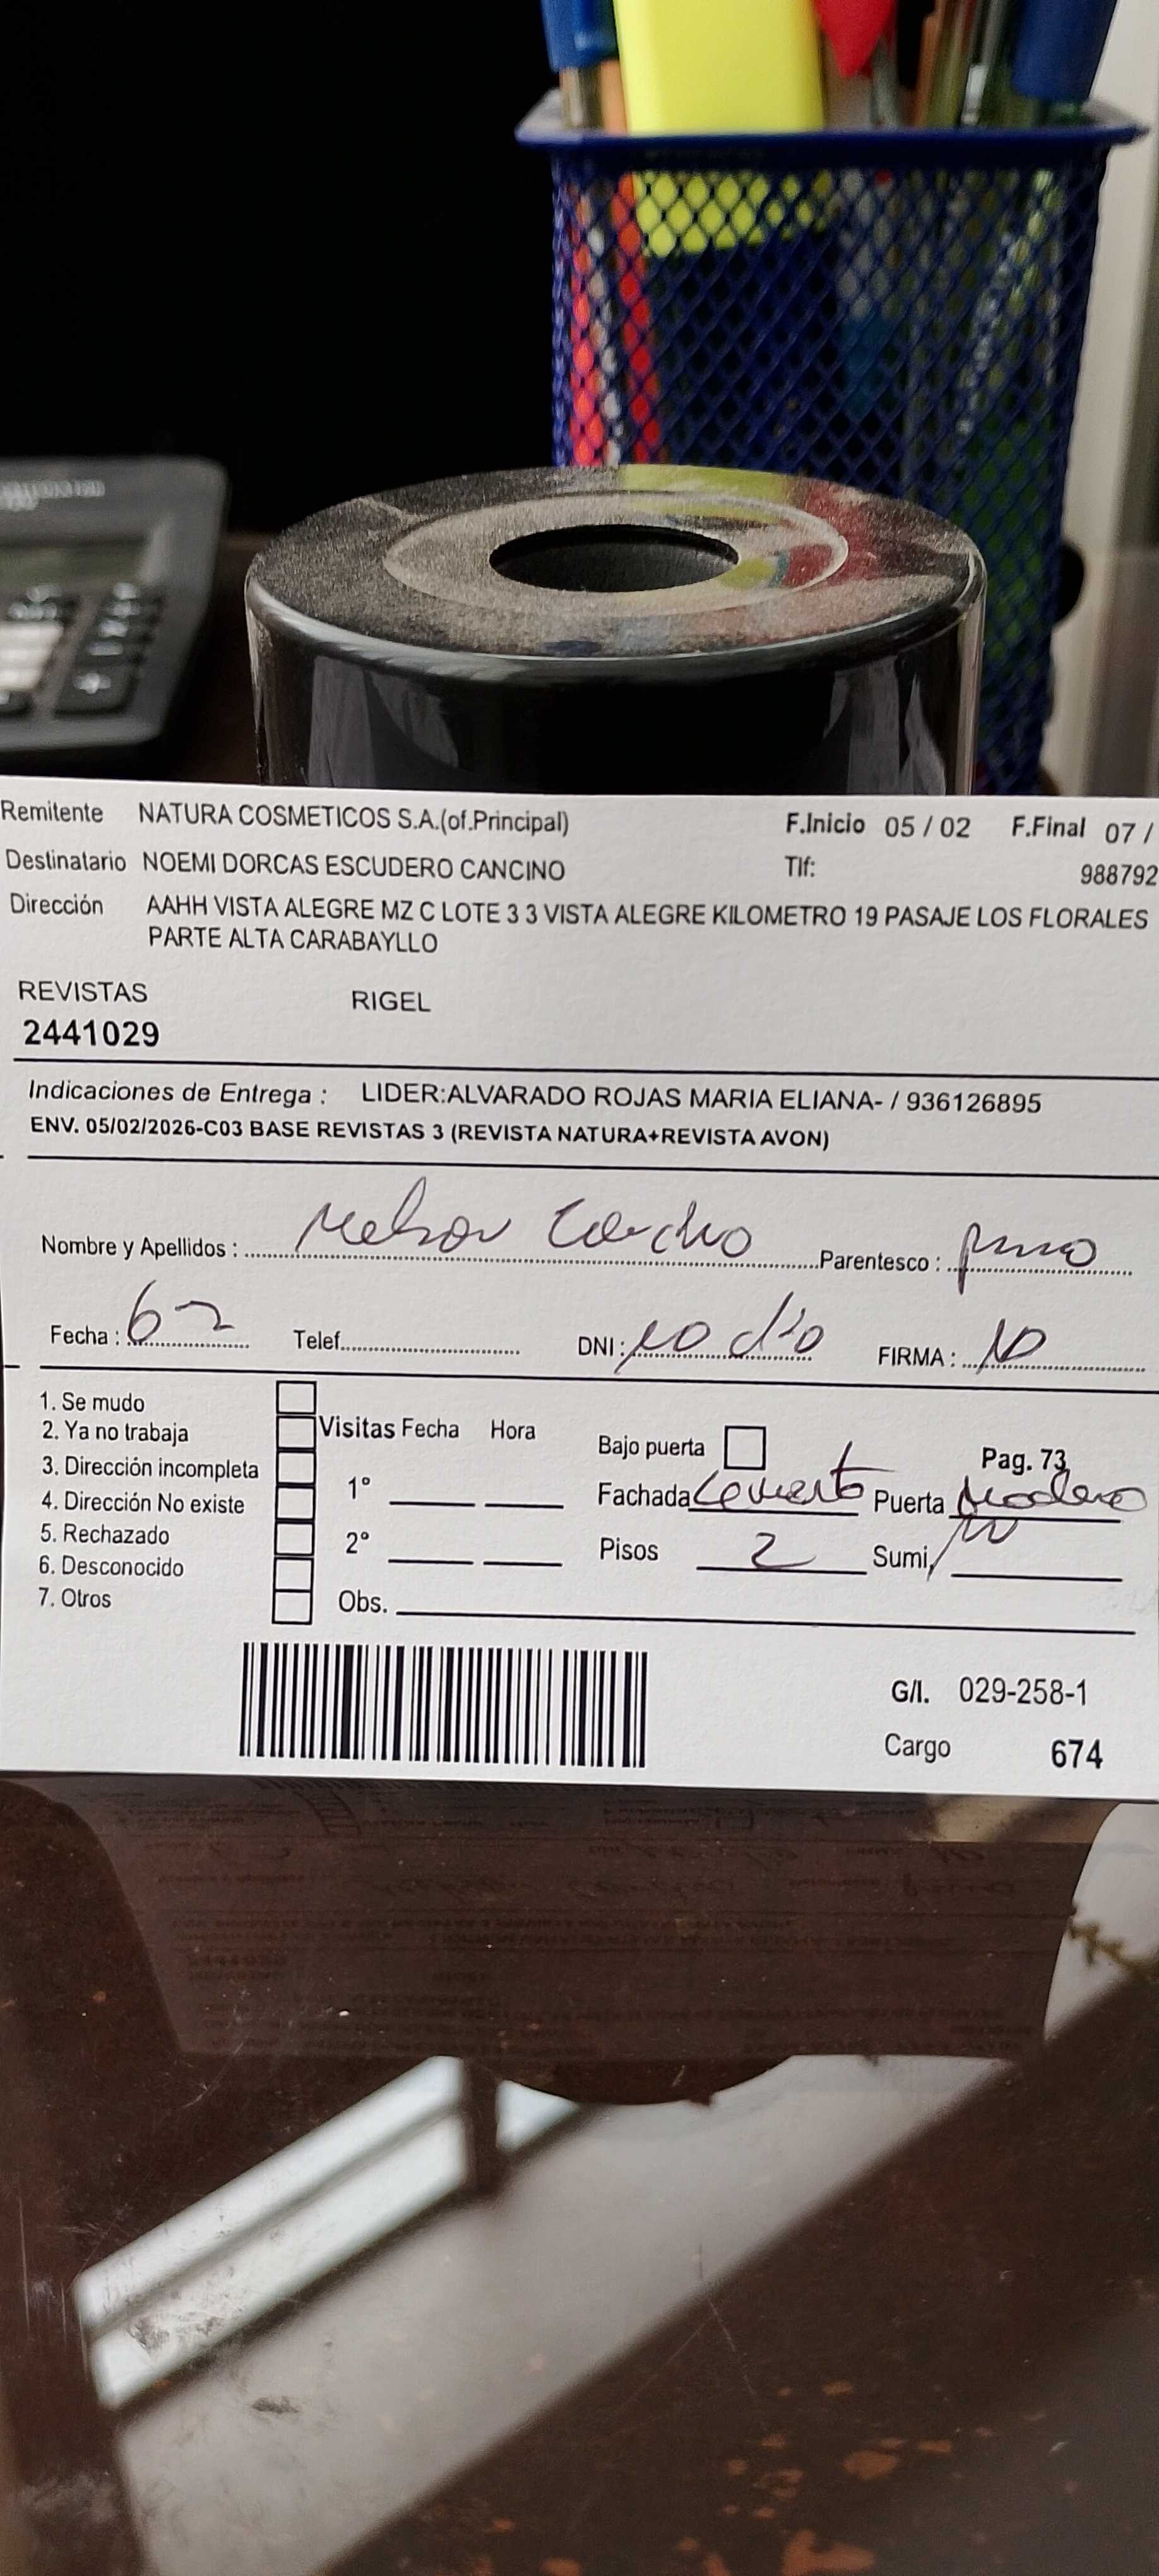 Remitente NATURA COSMETICOS S.A.(of.Principal) F.Inicio 05 / 02 F.Final 07 /
Destinatario NOEMI DORCAS ESCUDERO CANCINO Tlf: 988792
Dirección AAHH VISTA ALEGRE MZ C LOTE 3 3 VISTA ALEGRE KILOMETRO 19 PASAJE LOS FLORALES
PARTE ALTA CARABAYLLO
REVISTAS RIGEL
2441029
Indicaciones de Entrega : LIDER:ALVARADO ROJAS MARIA ELIANA- / 936126895
ENV. 05/02/2026-C03 BASE REVISTAS 3 (REVISTA NATURA+REVISTA AVON)
Nombre y Apellidos : Parentesco :
Fecha : 6-2 Telef. DNI: no dio FIRMA : NO
1. Se mudo
2. Ya no trabaja Visitas Fecha Hora Bajo puerta Pag. 73
3. Dirección incompleta
4. Dirección No existe 1° Fachada Cemento Puerta Madera
5. Rechazado
6. Desconocido 2° Pisos 2 Sumi,
7. Otros Obs.
G/I. 029-258-1
Cargo 674